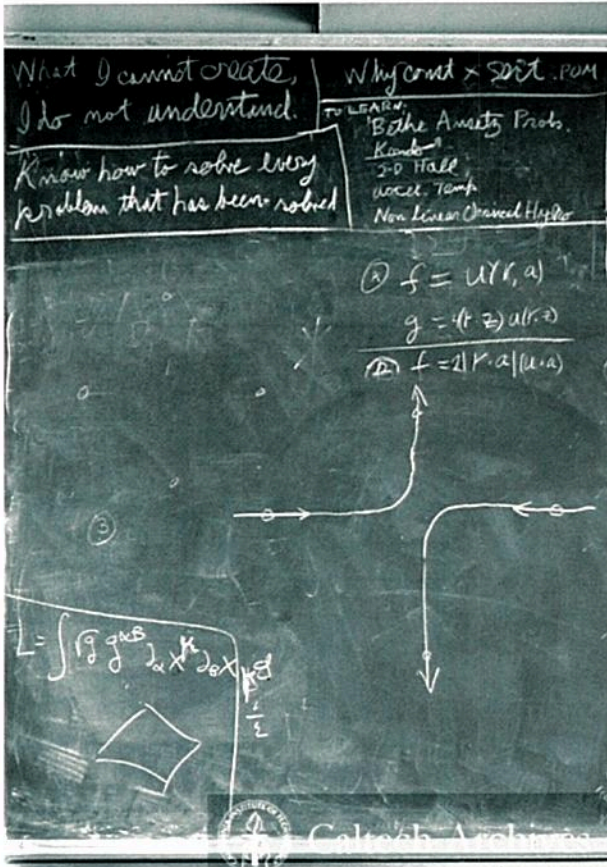 What I cannot create,
I do not understand.
Know how to solve every
problem that has been solved
Why const × sort . POM
TO LEARN:
Bethe Ansatz Probs.
Kondo
2-D Hall
accel. Temp
Non Linear Classical Hydro
Ⓐ f = u(r, a)
g = 4(r·z) u(r, z)
f = 2|r·a|(u·a)
③
L = ∫ √g g^αβ ∂α X ∂β X
Caltech Archives